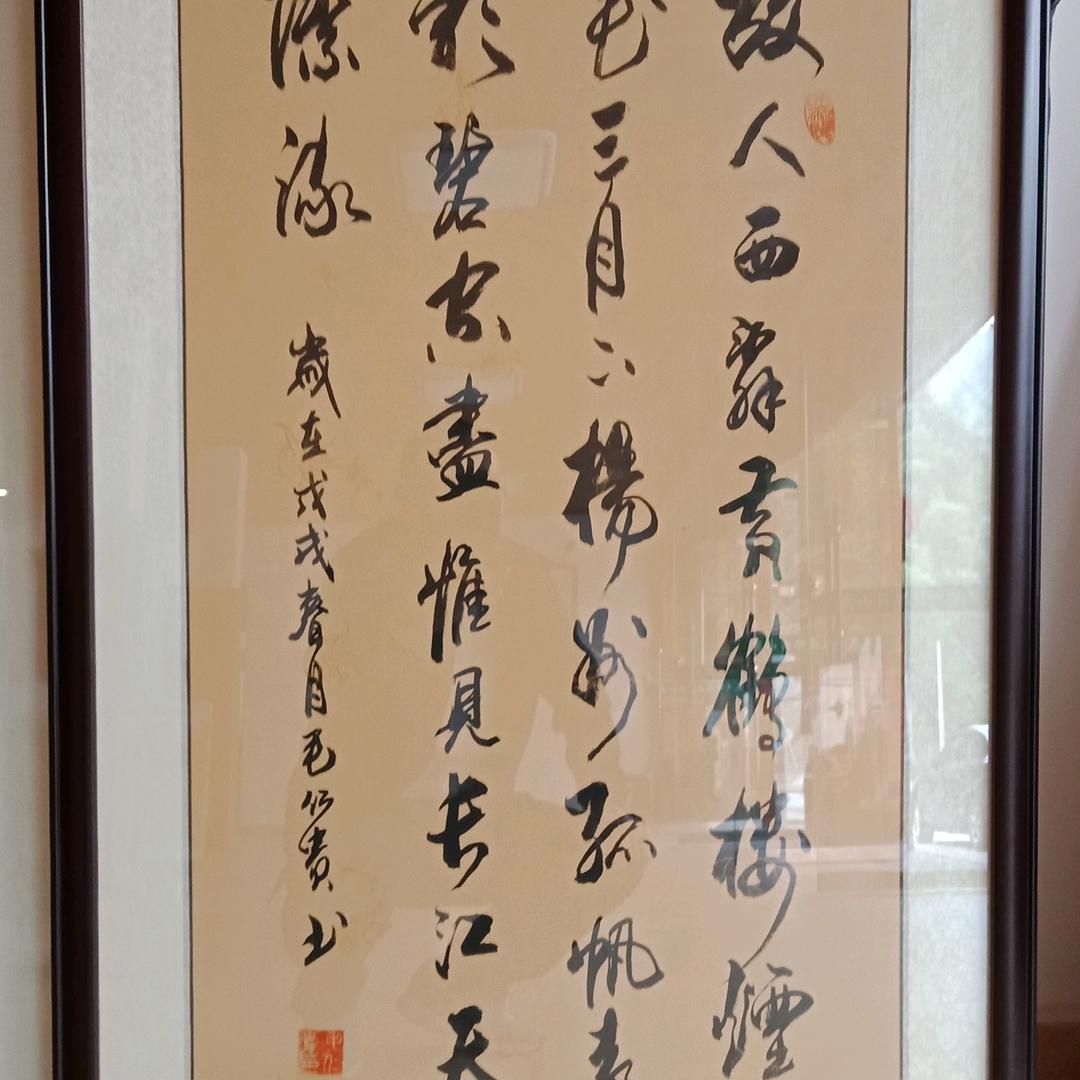 故人西辭黄鶴樓煙
花三月下楊州孤帆遠
影碧空盡惟見長江天
際流
歲在戊戌春月毛仁貴书